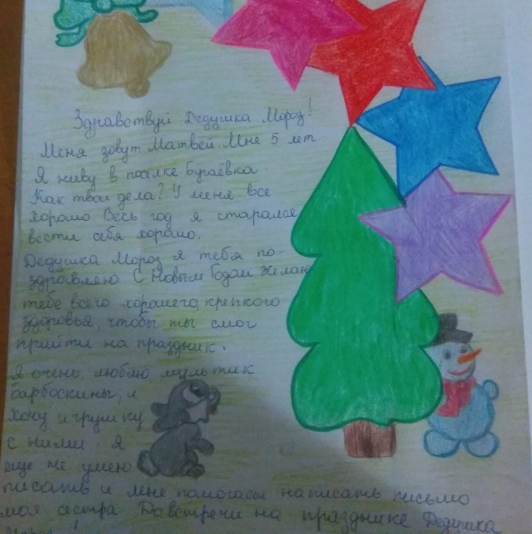 Здравствуй Дедушка Мороз!
Меня зовут Матвей. Мне 5 лет
Я живу в посёлке Бугаёвка.
Как твои дела? У меня все
хорошо. Весь год я старался
вести себя хорошо.
Дедушка Мороз я тебя по-
здравляю С Новым Годом Желаю
тебе всего хорошего, крепкого
здоровья, чтобы ты смог
прийти на праздник.
Я очень люблю мультик
барбоскины, и
хочу игрушку
с ними. Я
еще не умею
писать и мне помогает написать письмо
моя сестра. До встречи на празднике Дедушка